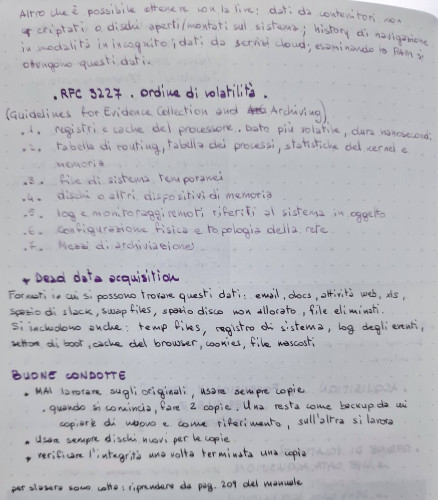 Altro che è possibile ottenere con la live: dati da contenitori non
criptati o dischi aperti/montati sul sistema; history di navigazione
in modalità in incognito; dati da servizi cloud; esaminando la RAM si
ottengono questi dati.
. RFC 3227 . Ordine di volatilità .
(Guidelines for Evidence Collection and Archiving)
. 1. registri e cache del processore. Dato più volatile, dura nanosecondi
. 2. tabella di routing, tabella dei processi, statistiche del kernel e
memoria
. 3. file di sistema temporanei
. 4. dischi o altri dispositivi di memoria
. 5. log e monitoraggi remoti riferiti al sistema in oggetto
. 6. configurazione fisica e topologia della rete.
. 7. Mezzi di archiviazione
Dead data acquisition
Formati in cui si possono trovare questi dati: email, docs, attività web, xls,
spazio di slack, swap files, spazio disco non allocato, file eliminati.
Si includono anche: temp files, registro di sistema, log degli eventi,
settore di boot, cache del browser, cookies, file nascosti
BUONE CONDOTTE
. MAI lavorare sugli originali, usare sempre copie
. quando si comincia, fare 2 copie. Una resta come backup da cui
copiare di nuovo e come riferimento, sull'altra si lavora
. Usare sempre dischi nuovi per le copie
. verificare l'integrità una volta terminata una copia
per stasera sono cotta: riprendere da pag. 209 del manuale